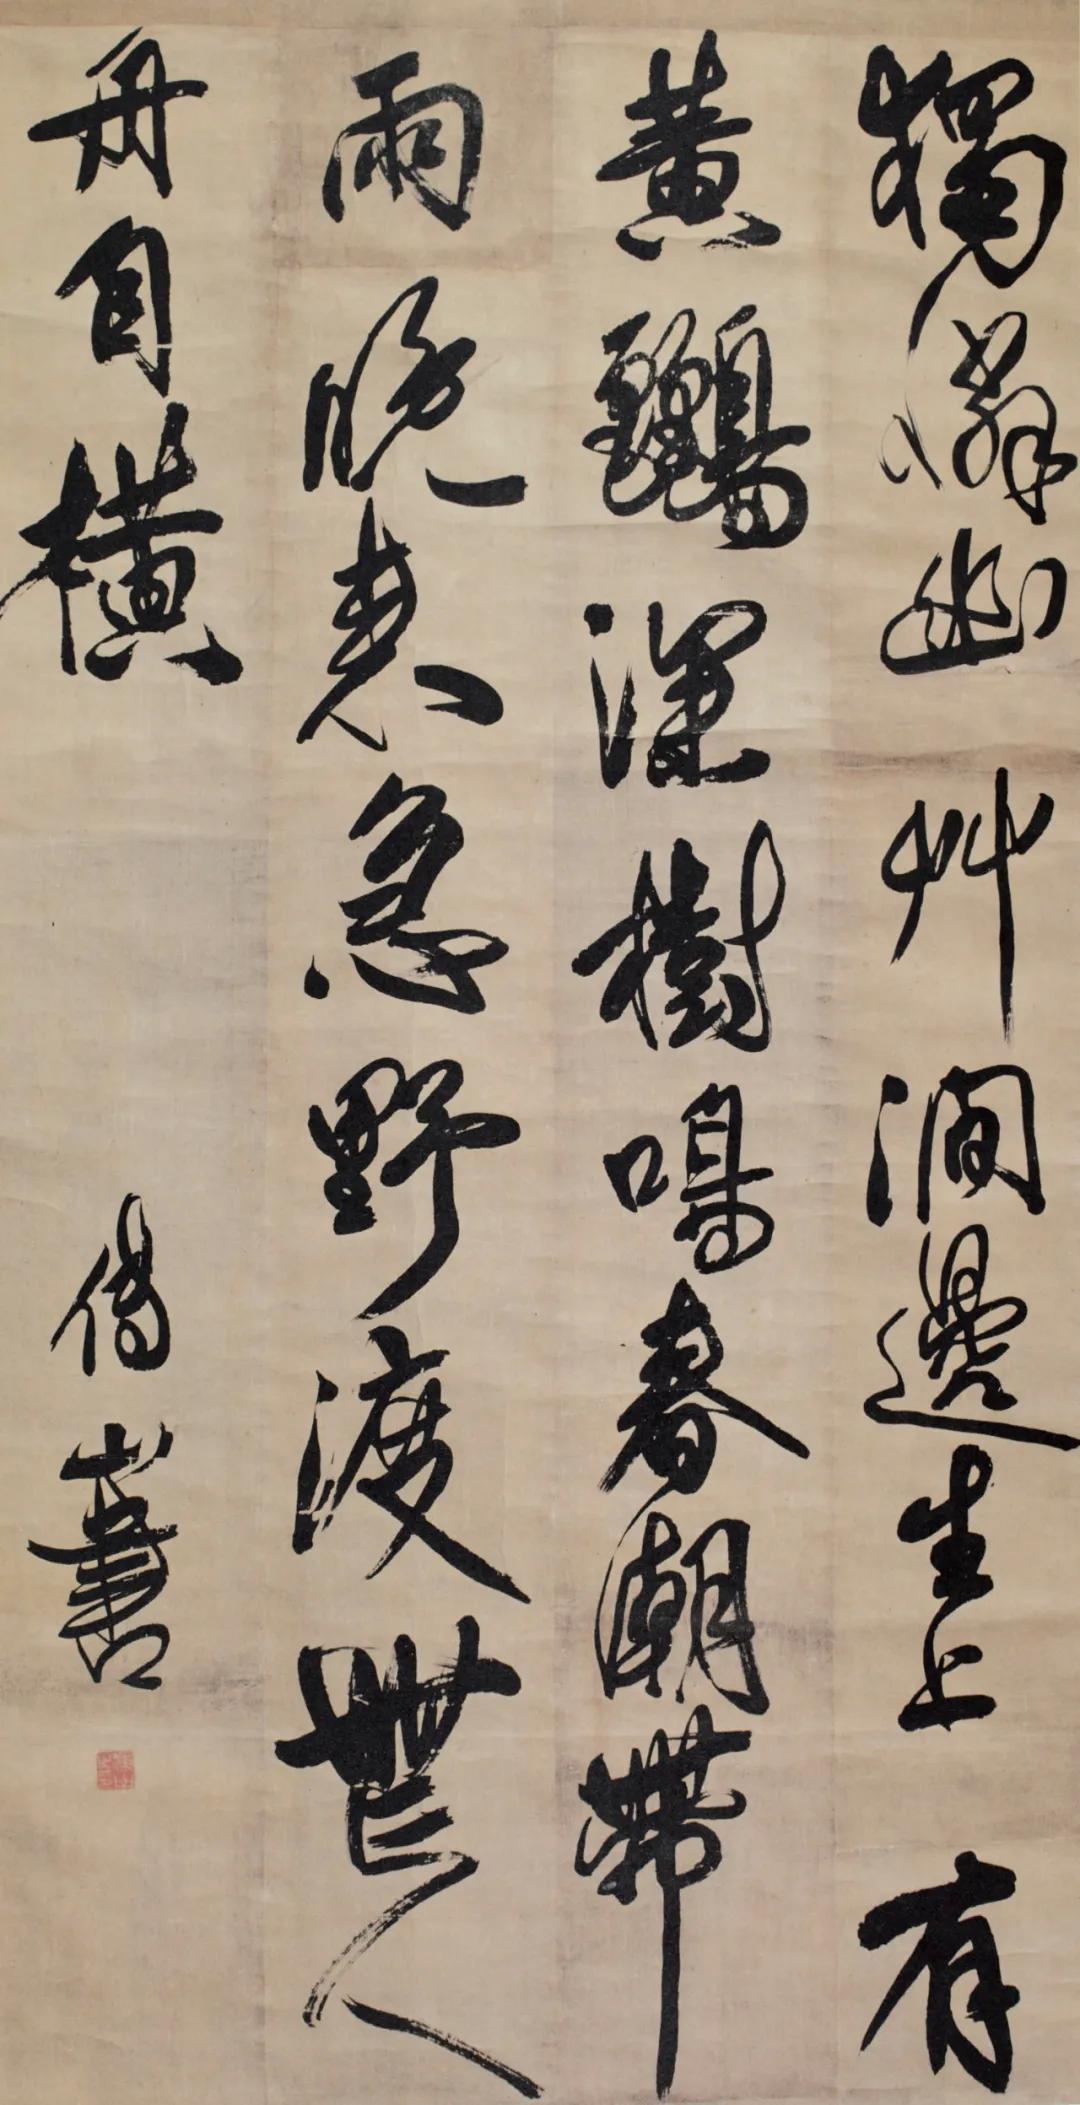 獨憐幽艸澗邊生上有
黃鸝深樹鳴春潮帶
雨晚來急野渡無人
舟自橫
傅山書